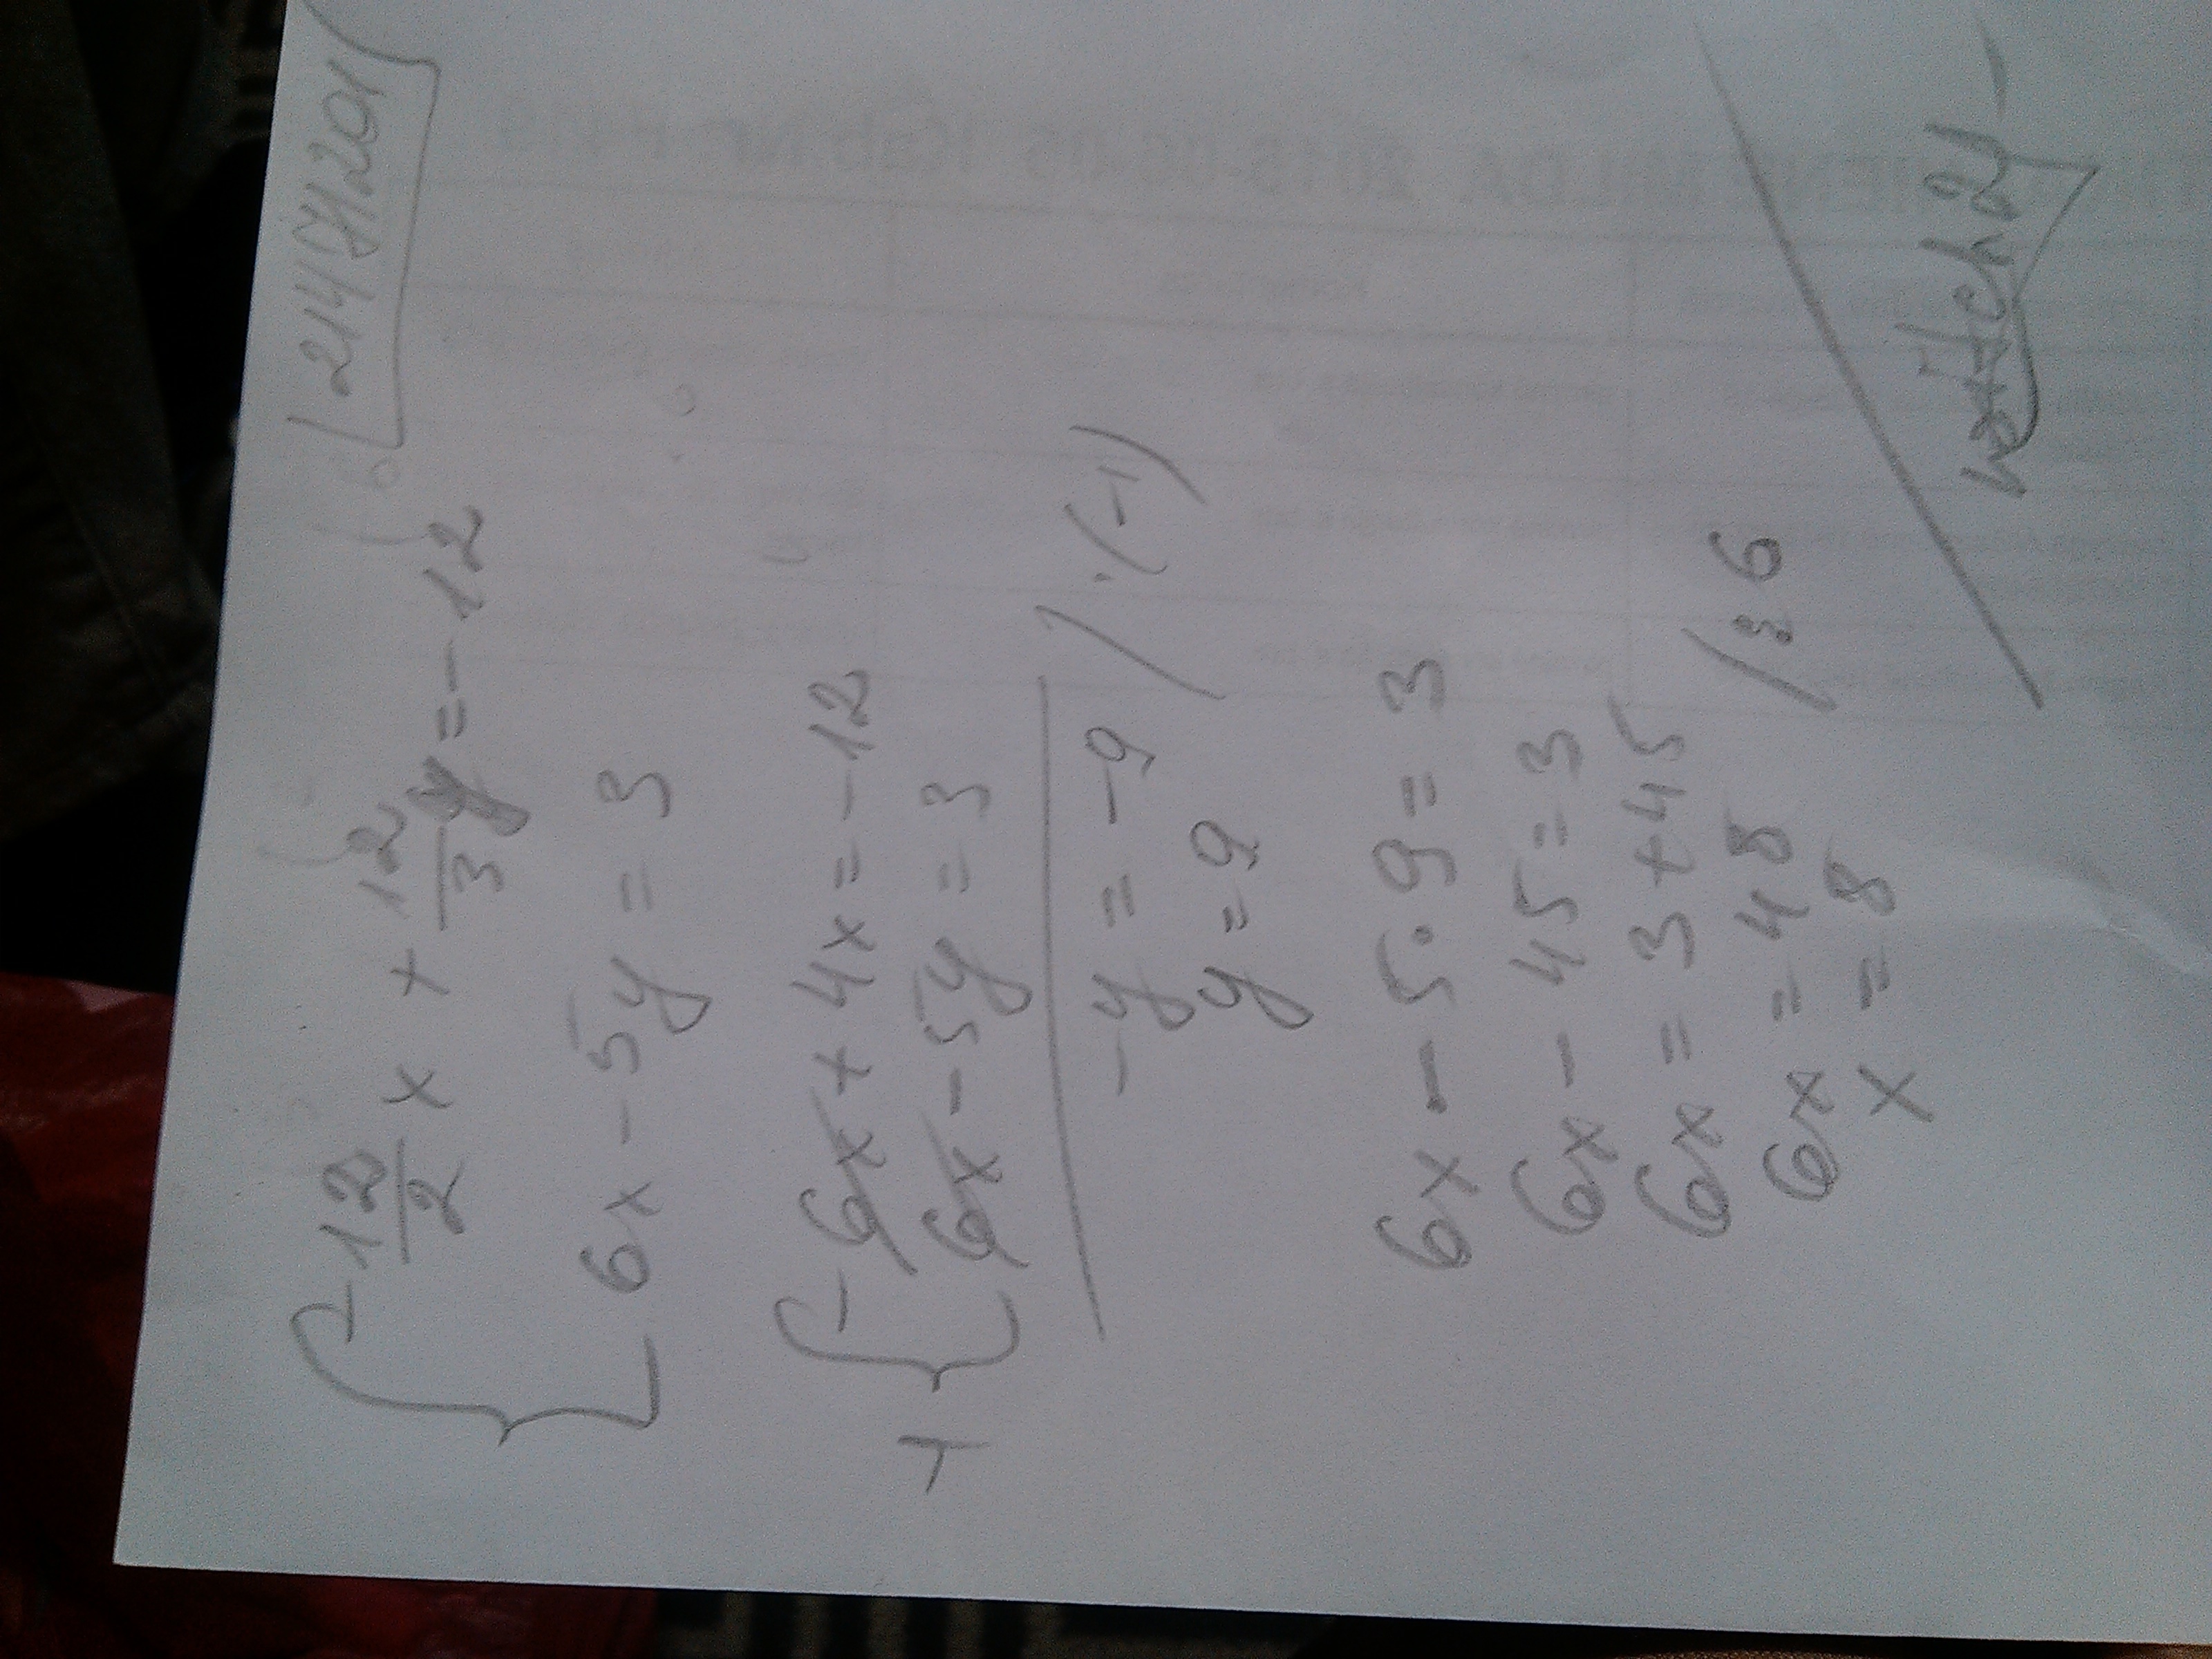 2144201
-12/2 x + 12/3 y = -12
6x - 5y = 3
+ { -6x + 4x = -12
6x - 5y = 3
-y = -9 / ·(-1)
y = 9
6x - 5·9 = 3
6x - 45 = 3
6x = 3 + 45
6x = 48 / : 6
x = 8